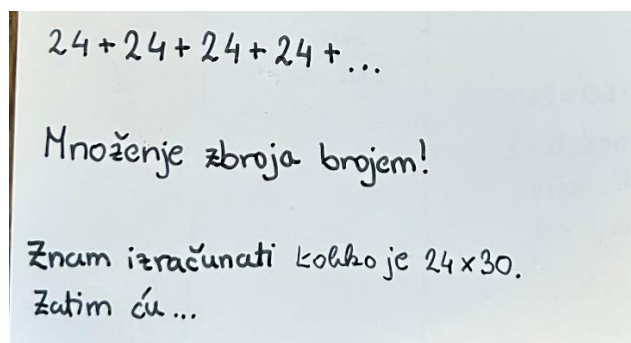 24+24+24+24+...
Množenje zbroja brojem!
Znam izračunati koliko je 24×30.
Zatim ću...